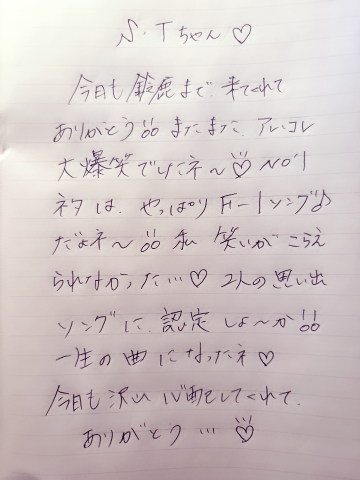 S・Tちゃん♡
今日も鈴鹿まで、来てくれて
ありがとう!! またまた、アレ、コレ
大爆笑でしたネ〜♡ No.1
ネタは、やっぱり F-1ソング♪
だよネ〜!! 私 笑いが こらえ
られなかった…♡ 2人の思い出
ソングに、認定 しょ〜か!!
一生の曲になったネ♡
今日も沢山 心配してくれて、
ありがとう …♡